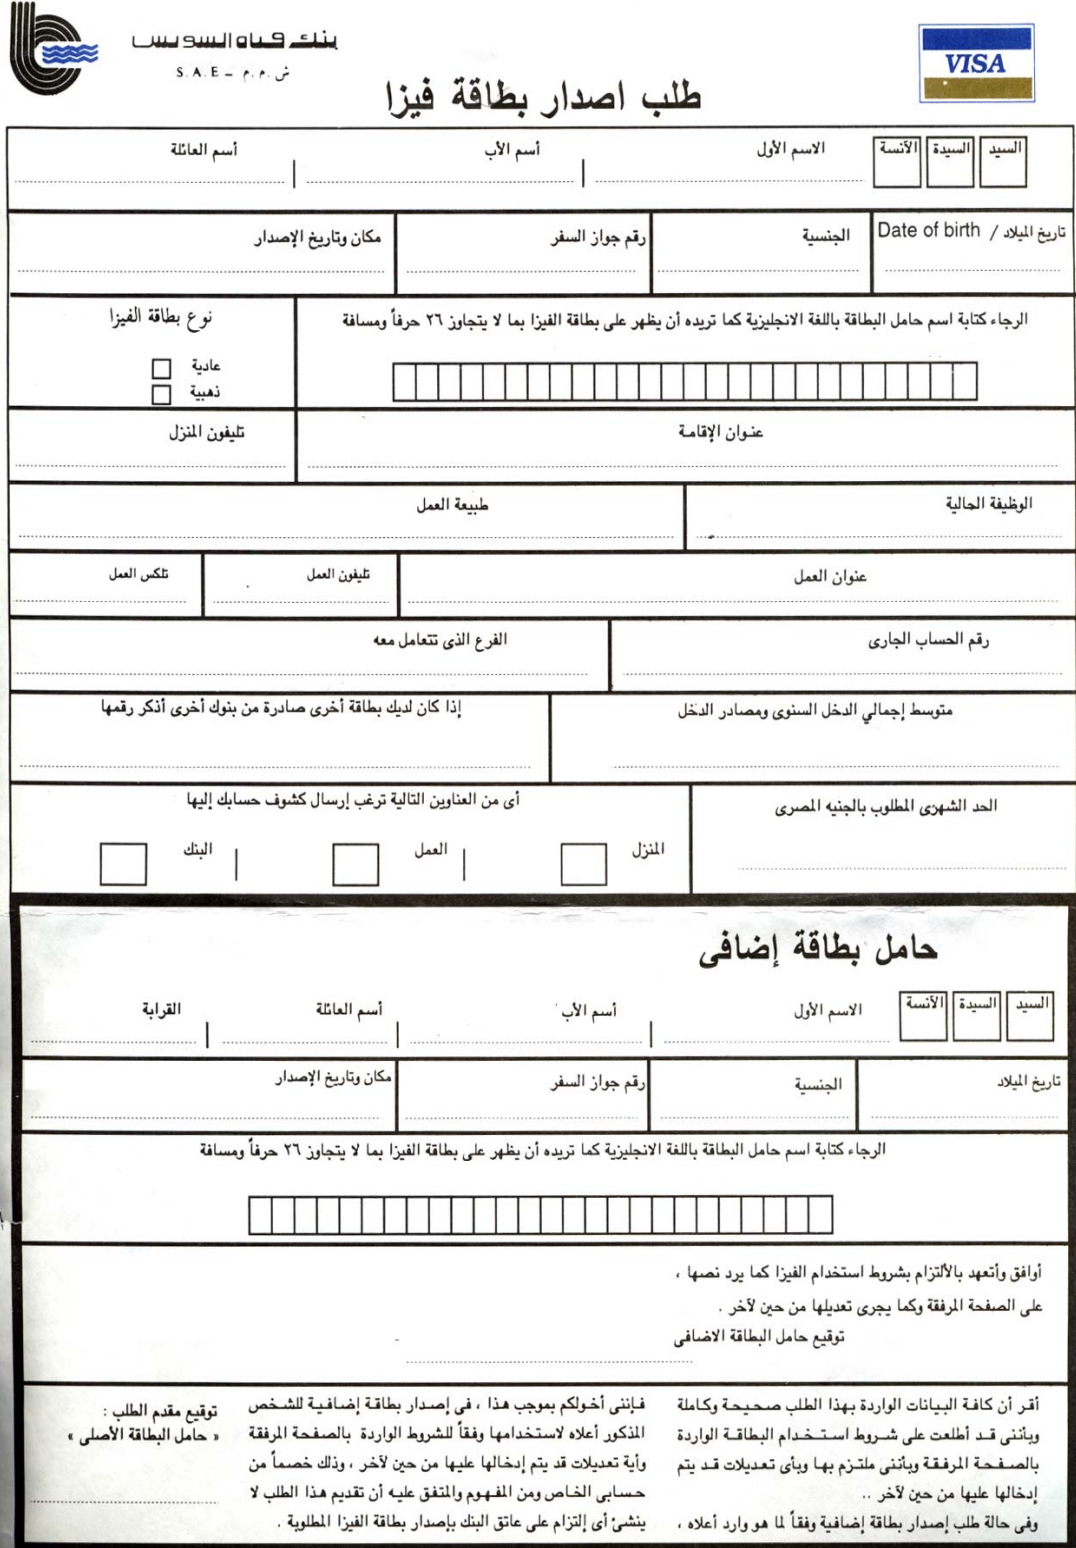 بنك قناه السويس
ش.م.م – S.A.E
VISA
طلب اصدار بطاقة فيزا
السيد السيدة الآنسة الاسم الأول أسم الأب أسم العائلة
تاريخ الميلاد / Date of birth الجنسية رقم جواز السفر مكان وتاريخ الإصدار
الرجاء كتابة اسم حامل البطاقة باللغة الانجليزية كما تريده أن يظهر على بطاقة الفيزا بما لا يتجاوز ٢٦ حرفاً ومسافة
نوع بطاقة الفيزا
عادية
ذهبية
عنوان الإقامة تليفون المنزل
الوظيفة الحالية طبيعة العمل
عنوان العمل تليفون العمل تلكس العمل
رقم الحساب الجارى الفرع الذى تتعامل معه
متوسط إجمالي الدخل السنوى ومصادر الدخل إذا كان لديك بطاقة أخرى صادرة من بنوك أخرى أذكر رقمها
الحد الشهرى المطلوب بالجنيه المصرى أى من العناوين التالية ترغب إرسال كشوف حسابك إليها
المنزل العمل البنك
حامل بطاقة إضافى
السيد السيدة الآنسة الاسم الأول أسم الأب أسم العائلة القرابة
تاريخ الميلاد الجنسية رقم جواز السفر مكان وتاريخ الإصدار
الرجاء كتابة اسم حامل البطاقة باللغة الانجليزية كما تريده أن يظهر على بطاقة الفيزا بما لا يتجاوز ٢٦ حرفاً ومسافة
أوافق وأتعهد بالألتزام بشروط استخدام الفيزا كما يرد نصها ،
على الصفحة المرفقة وكما يجرى تعديلها من حين لآخر .
توقيع حامل البطاقة الاضافى
أقر أن كافة البيانات الواردة بهذا الطلب صحيحة وكاملة
وبأننى قد أطلعت على شروط استخدام البطاقة الواردة
بالصفحة المرفقة وبأننى ملتزم بها وبأى تعديلات قد يتم
إدخالها عليها من حين لآخر ..
وفى حالة طلب إصدار بطاقة إضافية وفقاً لما هو وارد أعلاه ،
فإننى أخولكم بموجب هذا ، فى إصدار بطاقة إضافية للشخص
المذكور أعلاه لاستخدامها وفقاً للشروط الواردة بالصفحة المرفقة
وأية تعديلات قد يتم إدخالها عليها من حين لآخر ، وذلك خصماً من
حسابى الخاص ومن المفهوم والمتفق عليه أن تقديم هذا الطلب لا
ينشئ أى إلتزام على عاتق البنك بإصدار بطاقة الفيزا المطلوبة .
توقيع مقدم الطلب :
« حامل البطاقة الأصلى »